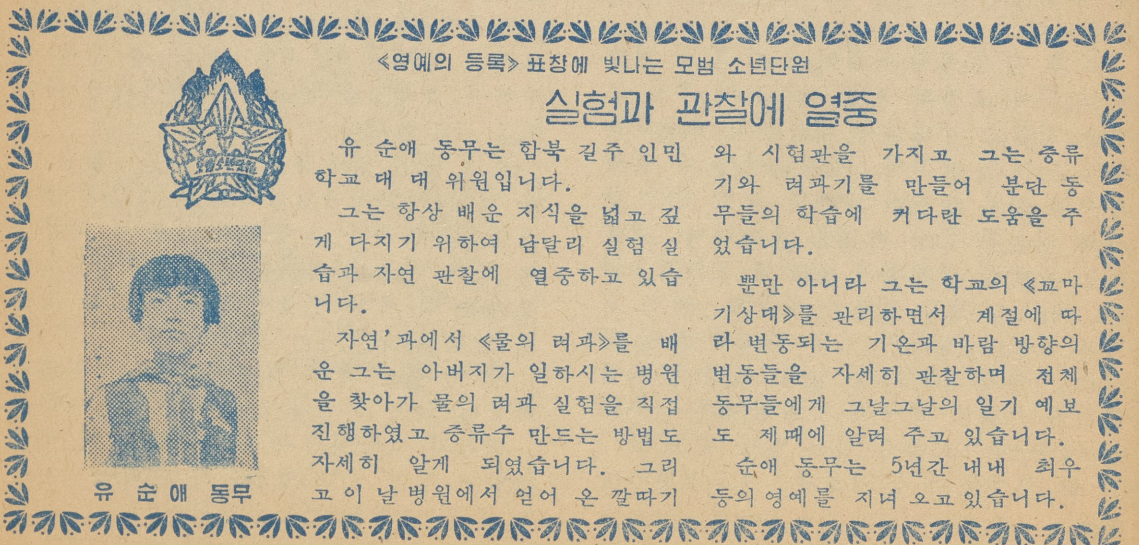 《영예의 등록》 표창에 빛나는 모범 소년단원
실험과 관찰에 열중
유 순애 동무는 함북 길주 인민
학교 대 대 위원입니다.
그는 항상 배운 지식을 넓고 깊
게 다지기 위하여 남달리 실험 실
습과 자연 관찰에 열중하고 있습
니다.
자연'과에서 《물의 려과》를 배
운 그는 아버지가 일하시는 병원
을 찾아가 물의 려과 실험을 직접
진행하였고 증류수 만드는 방법도
자세히 알게 되였습니다. 그리
고 이 날 병원에서 얻어 온 깔따기
와 시험관을 가지고 그는 증류
기와 려과기를 만들어 분단 동
무들의 학습에 커다란 도움을 주
었습니다.
뿐만 아니라 그는 학교의 《꼬마
기상대》를 관리하면서 계절에 따
라 변동되는 기온과 바람 방향의
변동들을 자세히 관찰하며 전체
동무들에게 그날그날의 일기 예보
도 제때에 알려 주고 있습니다.
순애 동무는 5년간 내내 최우
등의 영예를 지녀 오고 있습니다.
유 순 애 동무